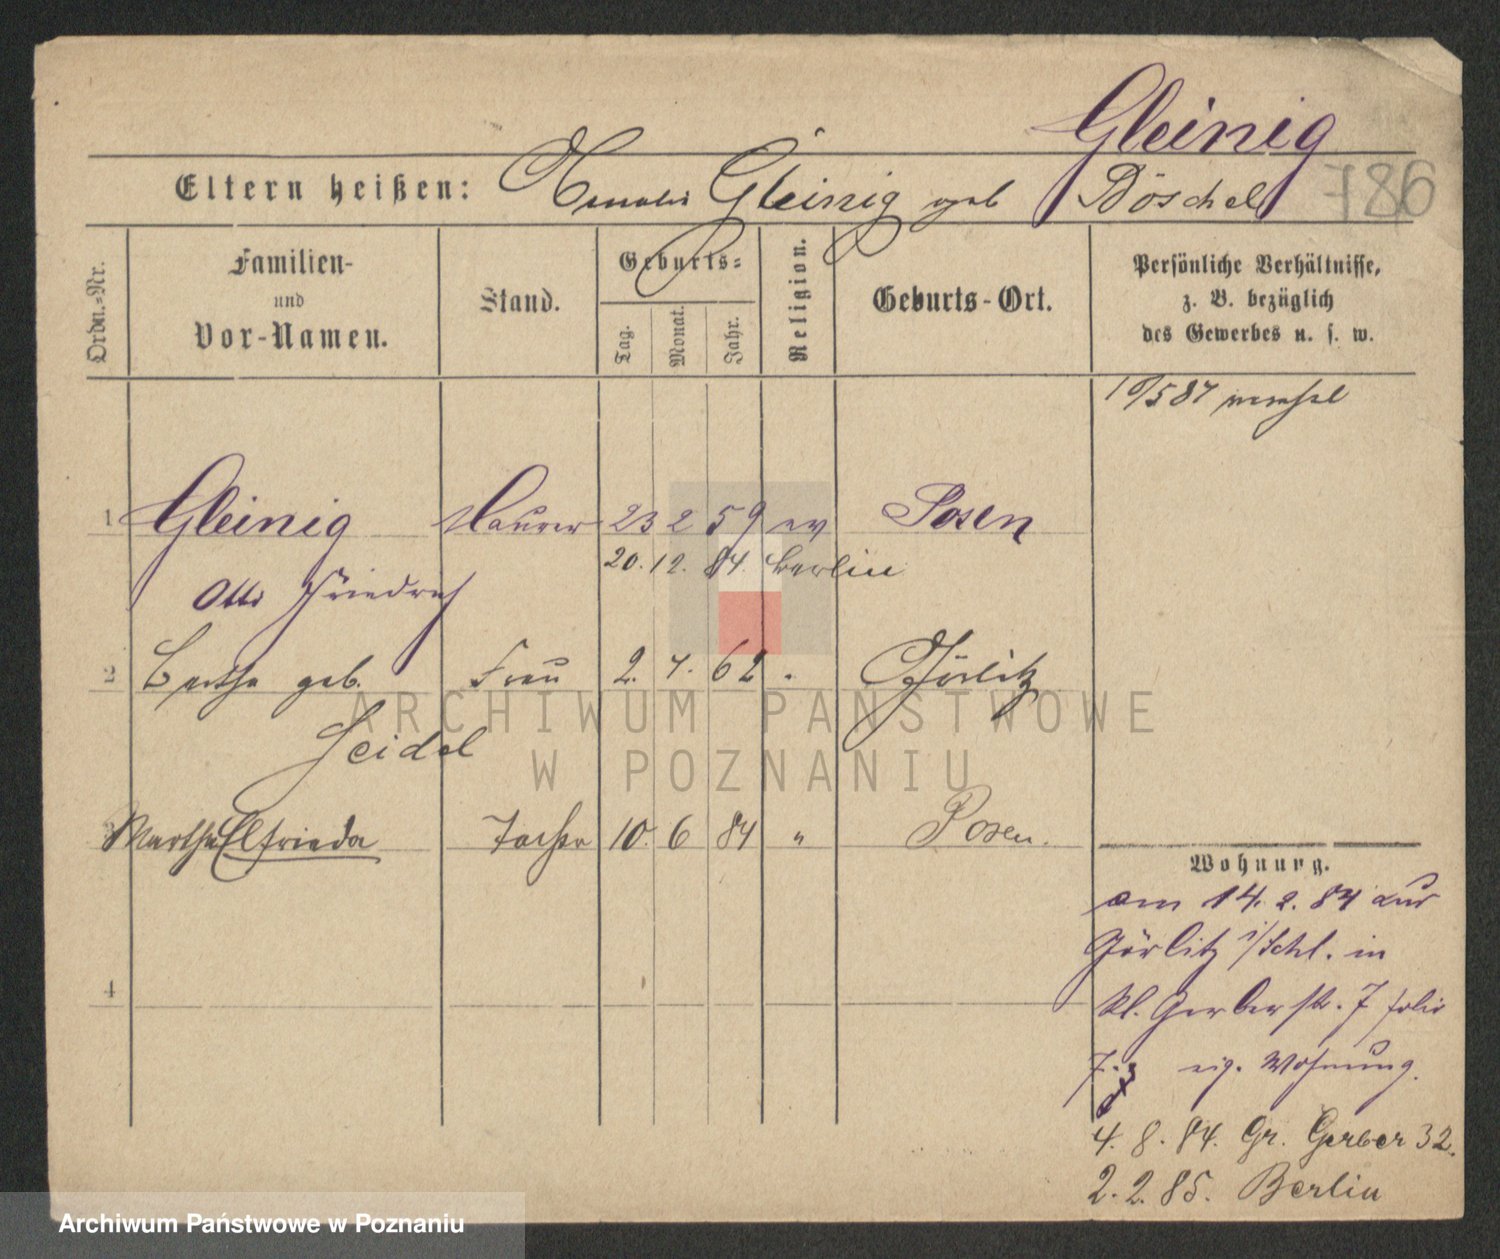 Gleinig
Eltern heißen: Gleinig geb Döschel 786
Ordn.-Nr. Familien- und Vor-Namen. Stand. Geburts- Tag. Monat. Jahr. Religion. Geburts-Ort. Persönliche Verhältnisse, z. B. bezüglich des Gewerbes u. s. w.
1 Gleinig Maurer 23 2 59 ev Posen
20. 12. 84. Berlin
Otto Friedrich
2 Bertha geb. Frau 2. 7. 62 Görlitz
Seidel
3 Martha Elfrieda Tochter 10. 6 84 " Posen.
4
Wohnung.
am 14. 2. 84 aus
Görlitz i/Schl. in
kl. Gerberstr. 7
eig. Wohnung.
4. 8. 84. Gr. Gerber 32.
2. 2. 85. Berlin
ARCHIWUM PAŃSTWOWE
W POZNANIU
Archiwum Państwowe w Poznaniu